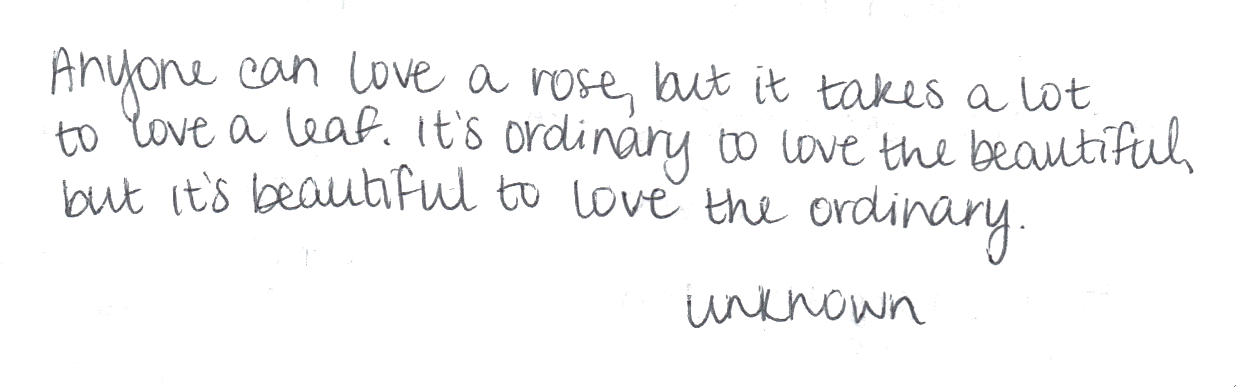 Anyone can love a rose, but it takes a lot
to love a leaf. It's ordinary to love the beautiful,
but it's beautiful to love the ordinary.
unknown